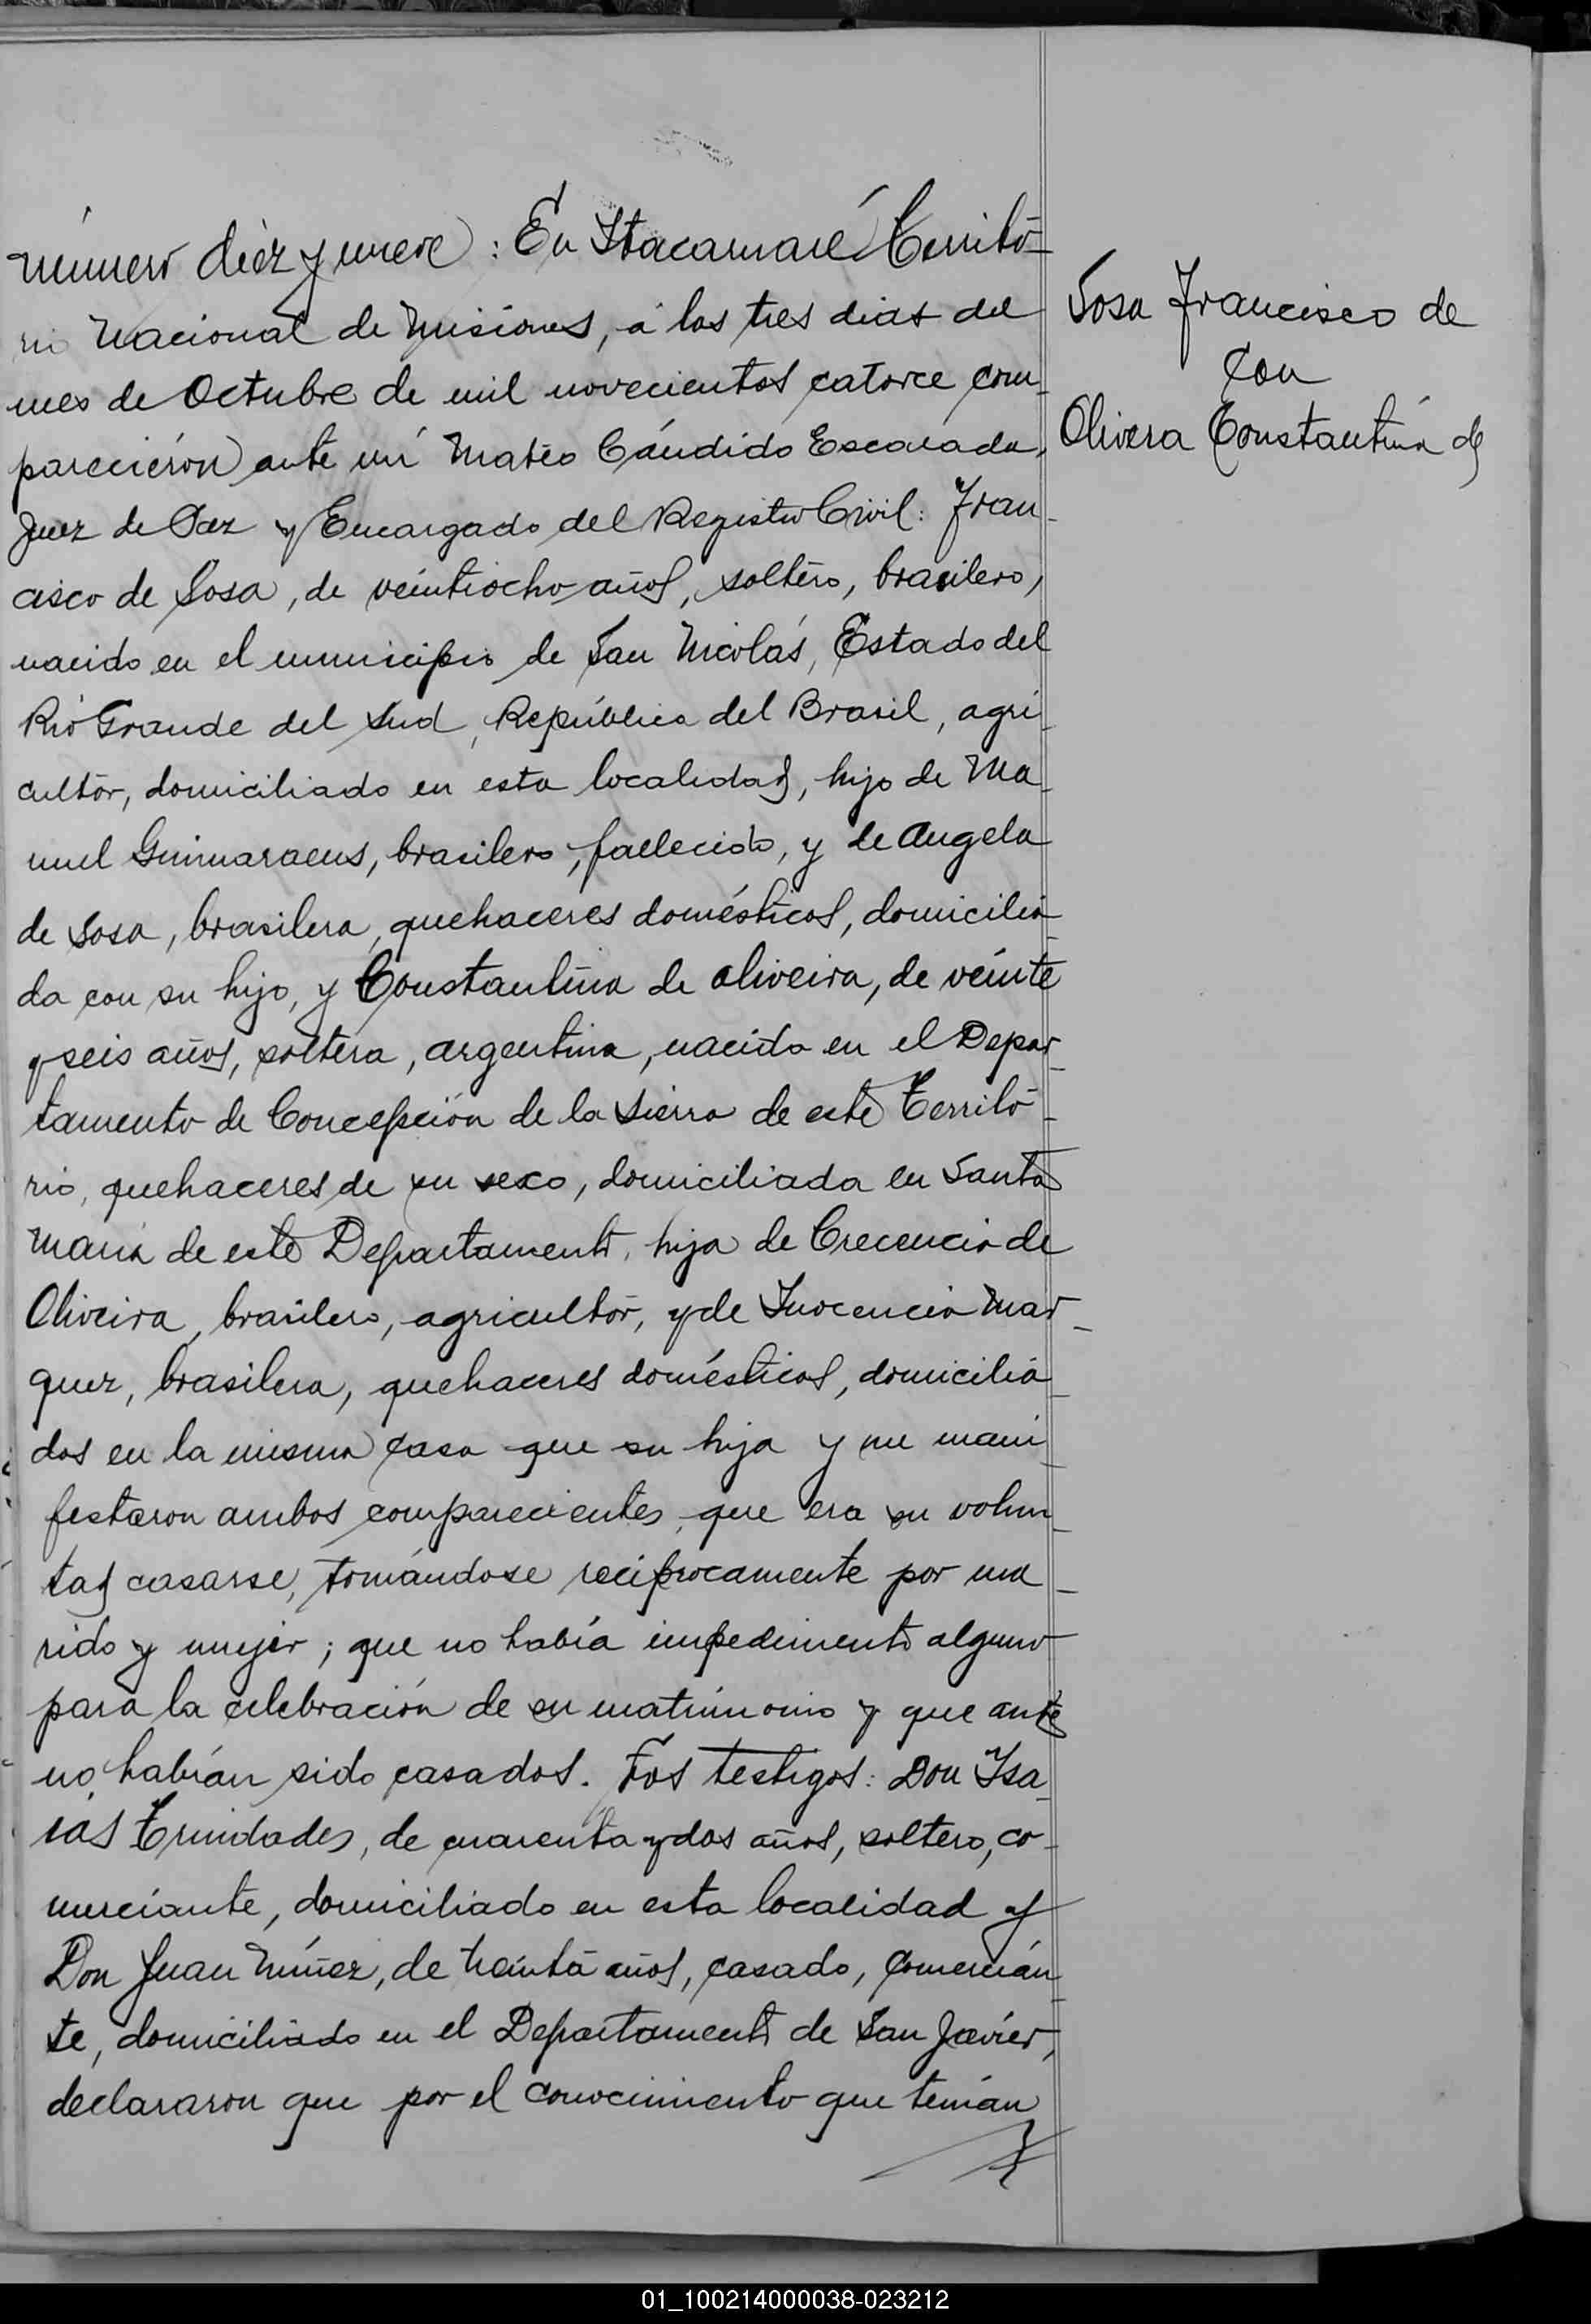 número diez y nueve: En Itacaruaré Territo-
rio Nacional de Misiones, á los tres dias del
mes de Octubre de mil novecientos catorce com-
parecieron ante mí Mateo Cándido Escarada,
Juez de Paz y Encargado del Registro Civil: Fran-
cisco de Sosa, de veintiocho años, soltero, brasilero,
nacido en el municipio de San Nicolás, Estado del
Rio Grande del Sud, República del Brasil, agri-
cultor, domiciliado en esta localidad, hijo de Ma-
nuel Guimaraens, brasilero, fallecido, y de Angela
de Sosa, brasilera, quehaceres domésticos, domicilia-
da con su hijo, y Constantina de Oliveira, de veinte
y seis años, soltera, argentina, nacida en el Depar-
tamento de Concepción de la Sierra de este Territo-
rio, quehaceres de su sexo, domiciliada en Santa
María de este Departamento, hija de Crecencio de
Oliveira, brasilero, agricultor, y de Inocencia Mar-
quez, brasilera, quehaceres domésticos, domicilia-
dos en la misma casa que su hija y me mani-
festaron ambos comparecientes, que era su volun-
tad casarse, tomándose recíprocamente por ma-
rido y mujer; que no había impedimento alguno
para la celebración de su matrimonio y que ante
no habían sido casados. Los testigos: Don Isa-
ías Trindades, de cuarenta y dos años, soltero, co-
merciante, domiciliado en esta localidad y
Don Juan Núñez, de treinta años, casado, comercian-
te, domiciliado en el Departamento de San Javier,
declararon que por el conocimiento que tenían
Sosa Francisco de
con
Olivera Constantina de
01_100214000038-023212